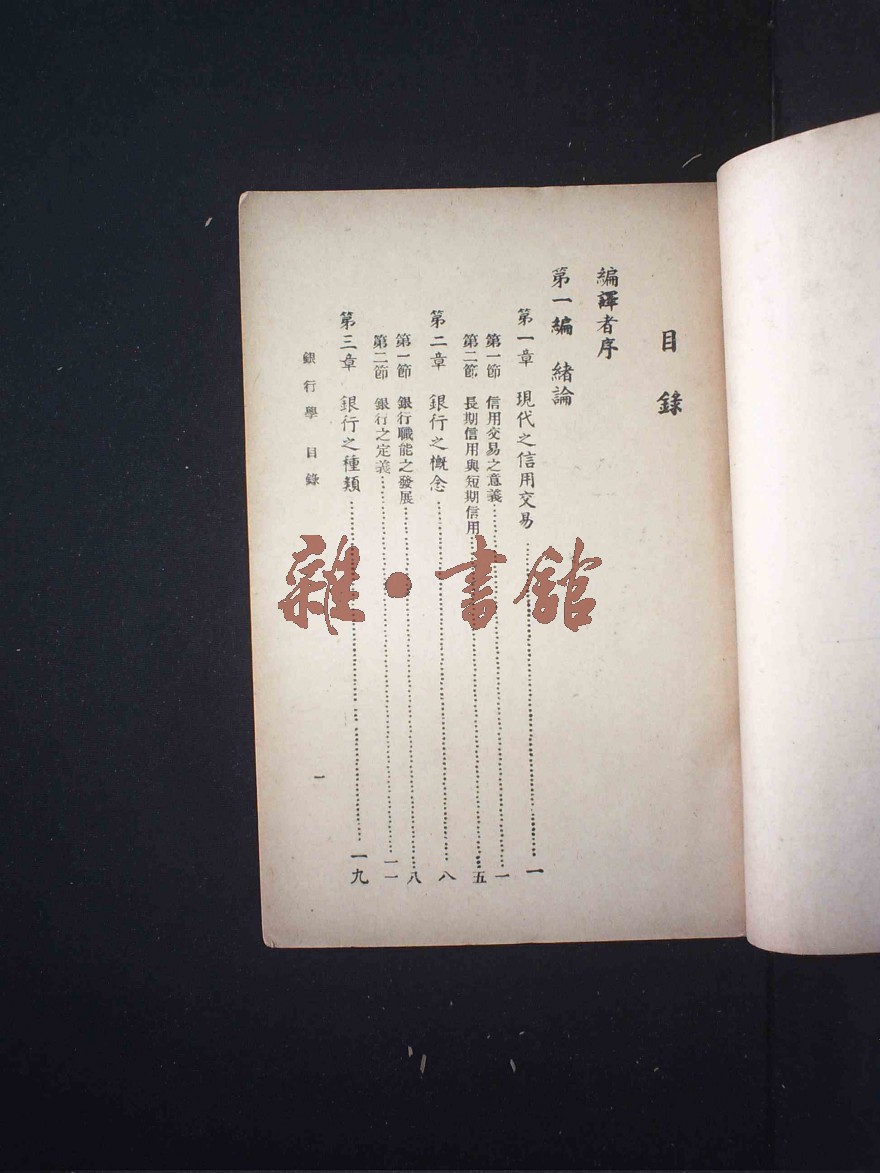 目錄
編譯者序
第一編 緒論
第一章 現代之信用交易……一
第一節 信用交易之意義……一
第二節 長期信用與短期信用……五
第二章 銀行之槪念……八
第一節 銀行職能之發展……八
第二節 銀行之定義……一一
第三章 銀行之種類……一九
銀行學 目錄
一
雜·書館